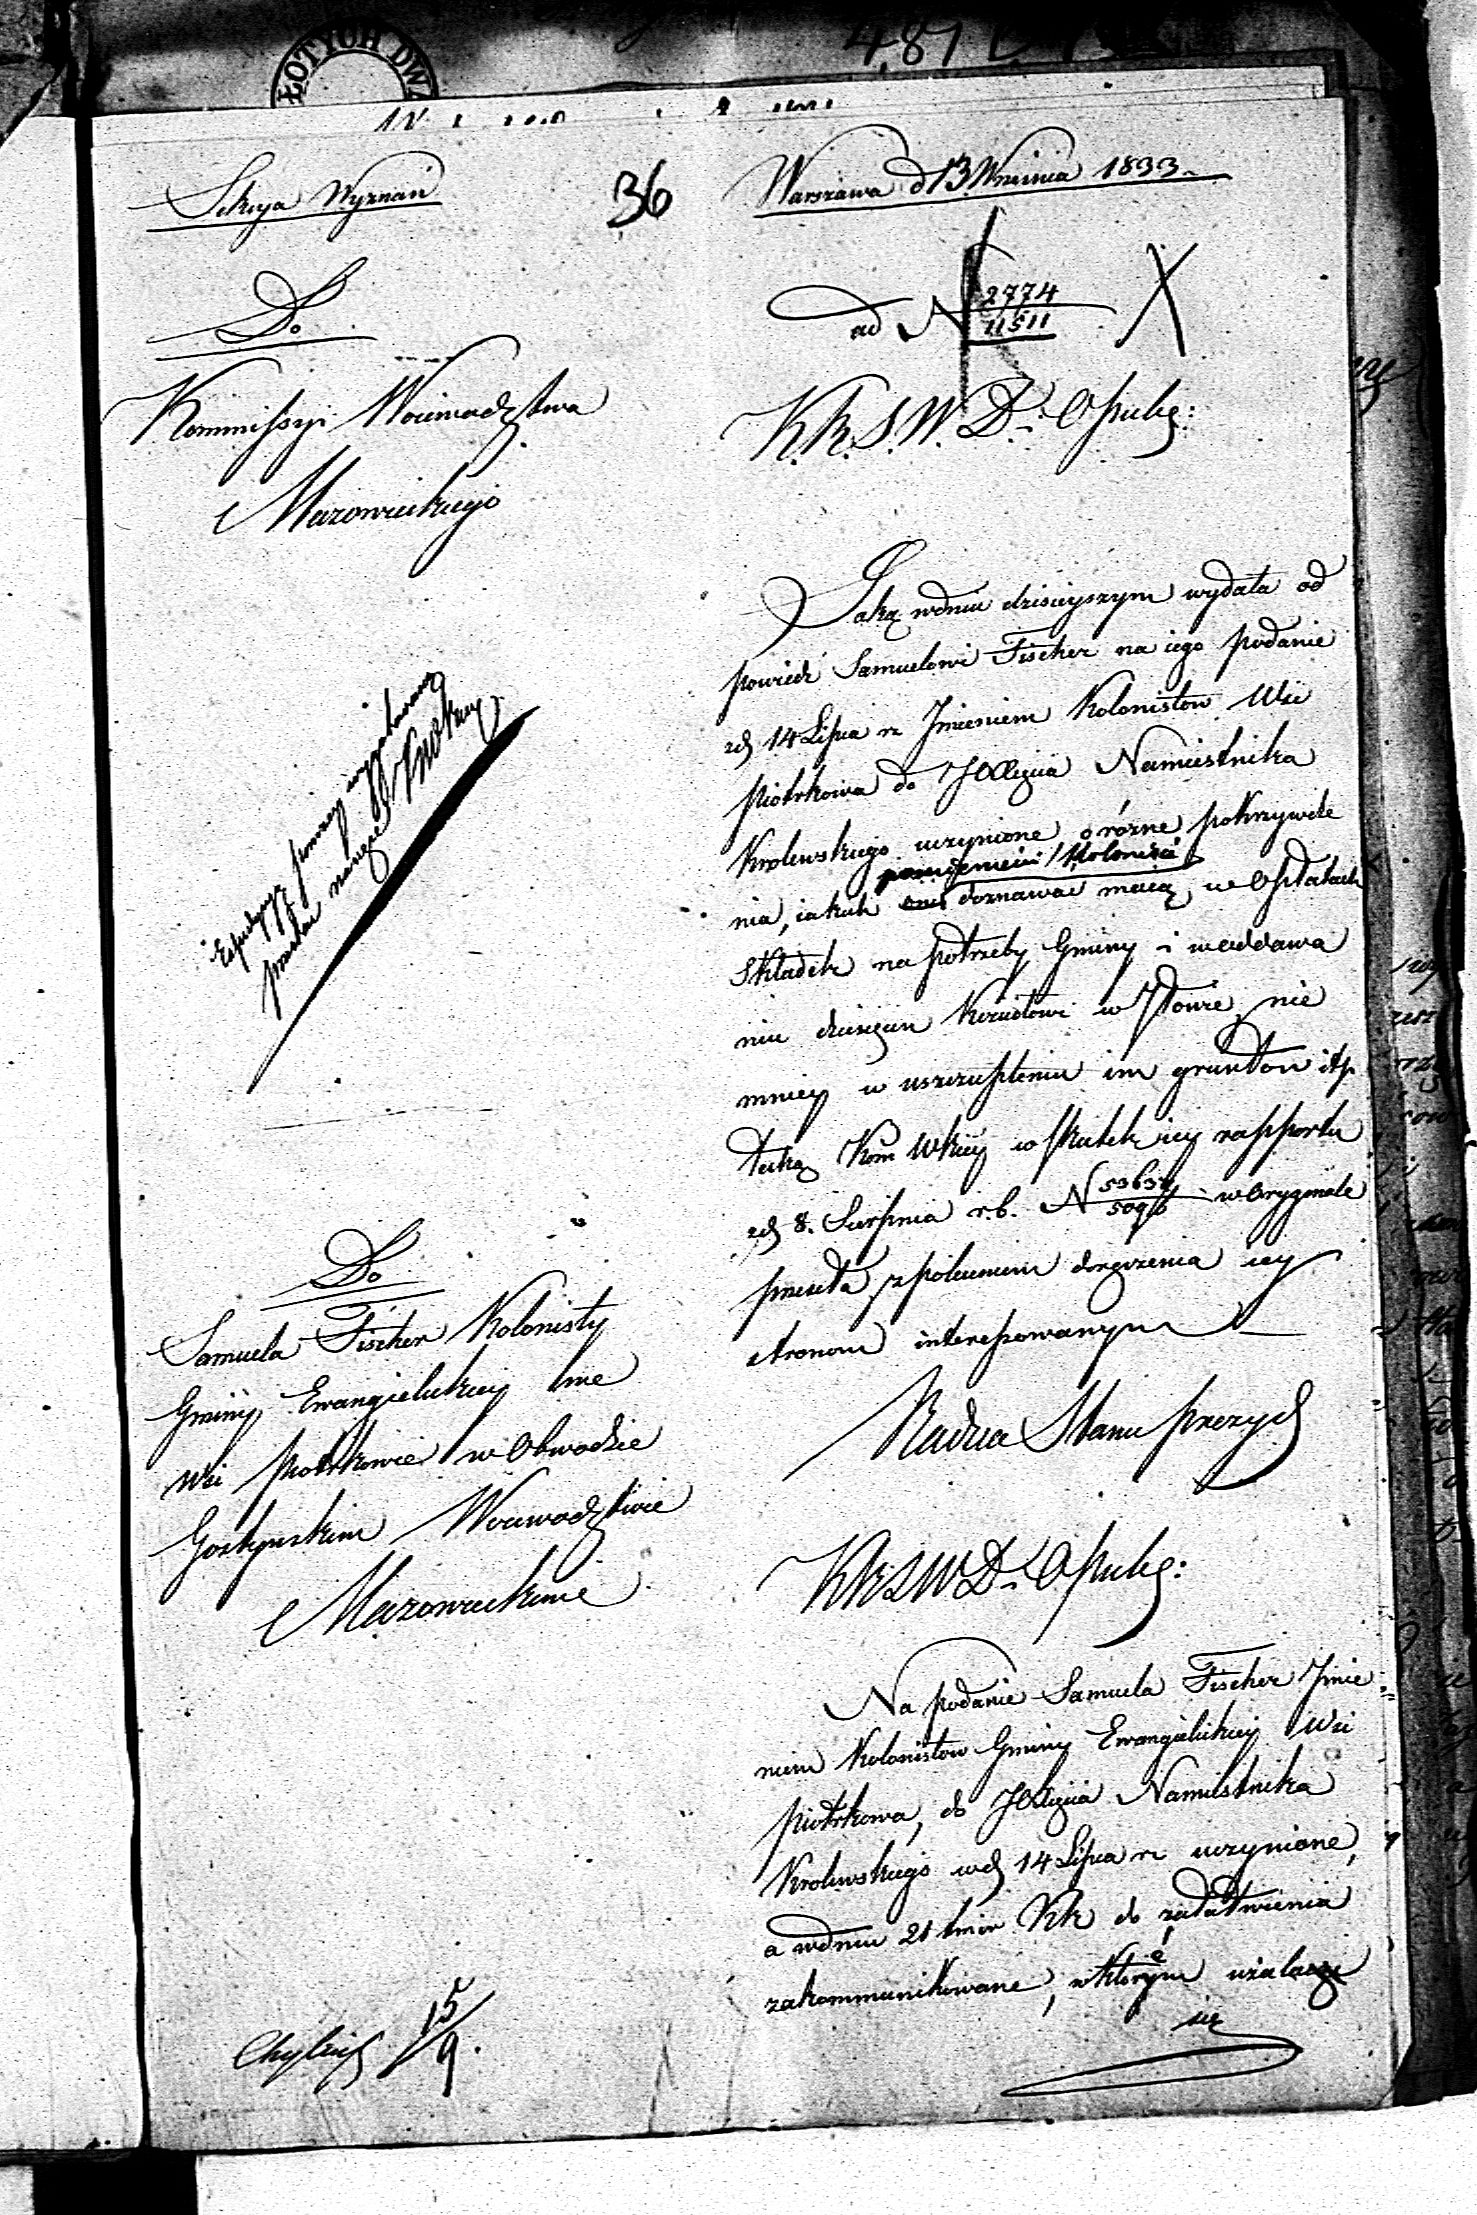 ŁOTYCH DWA
Sekcya Wyznań
36
Warszawa d 13 Września 1833.
Do
ad N 2774
11511
Kommissyi Woiewództwa
Mazowieckiego
K.R.S.W.D. i O. publ:
Jaką wdniu dzisieyszym wydała od
powiedź Samuelowi Fischer na iego podanie
zd 14 Lipca rz Jmieniem Kolonistow Wsi
Piotrkowa do JOXięcia Namiestnika
Krolewskiego uczynione, o rożne pokrzywdze
pomienieni Kolonisci
nia, iakich oni doznawać maią, w Opłatach
Składek na potrzeby Gminy i w oddawa
niu dziesięcin Xcieudzowi w Jłowie, nie
mniey w uszczupleniu im gruntow itp
taką Kom Wkiey w skutek iey rapportu
zd 8. Sierpnia r.b. N w Oryginale
przesyła, z poleceniem doręczenia iey
stronom interessowanym
Radca Stanu prezyd
Do
Samuela Fischer Kolonisty
Gminy Ewangielickiey we
Wsi Piotrkowie w Obwodzie
Gostynskim Woiewodztwie
Mazowieckiem
KRSWD. i O publ:
Na podanie Samuela Fischer Jmie
niem Kolonistow Gminy Ewangielickiey Wsi
Piotrkowa, do JOXięcia Namiestnika
Krolewskiego wd 14 Lipca rz uczynione,
a wdniu 21 tmr KR do załatwienia
zakommunikowane, w ktorym użalacie
się
15/9.